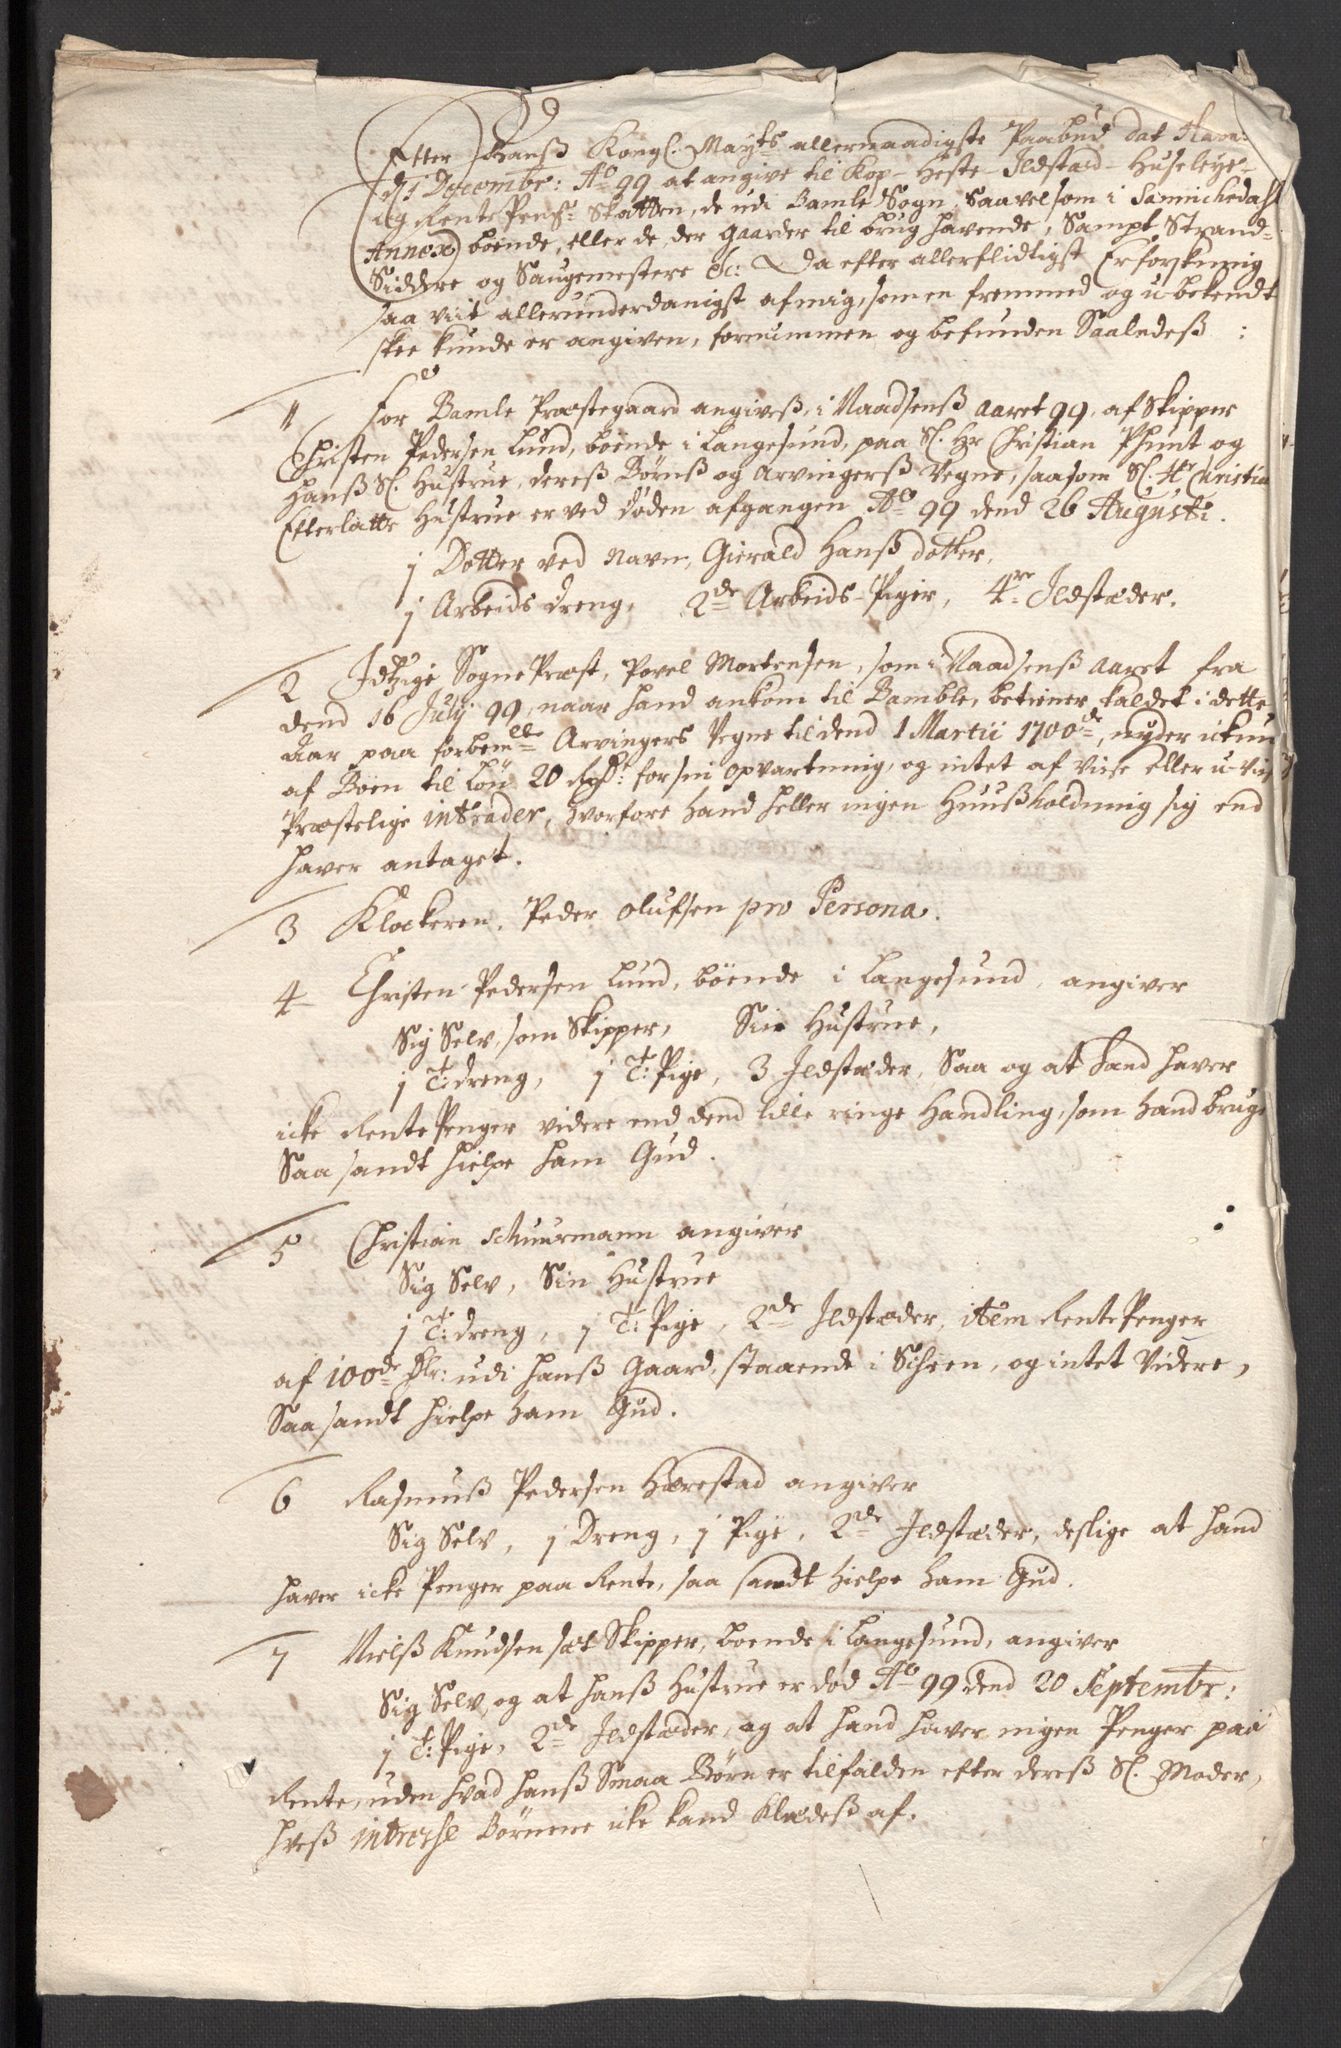 Efter Hanß Kongl. Mayts allernaadigste Paabud dat Havn:
d. 1 Decembr: Ao 99 at angive til Kop- Heste- Ildstæd- Huseleye-
og Rente Peng: Skatten, de udi Bamle Sogn, Saavelsom i Sannichedahl
Annex boende, eller de der gaarder til brug havende, Sampt Strand-
Siddere og Saugemestere &c: Da efter allerflidtigst Erforskning
saa viit allerunderdanigst af mig, som en fremmed og ubekendt
skee kunde er angiven, fornummen og befunden Saaledeß :
1 For Bamle Præstegaard angiveß, i Naadsenß aaret 99, af Skipper
Christen Pedersen Lund, boende i Langesund, paa Sl. Hr Christian Phunt og
Hanß Sl. Hustrue, dereß Børnß og Arvingerß Vegne, saasom Sl. Hr Christia
Efterlatte Hustrue er ved døden afgangen Ao 99 dend 26 Augusti.
1 Dotter ved navn, Gierald Hanß dotter,
1 Arbeids dreng, 2de Arbeids-Piger, 4re Ildstæder.
2 Idtzige Sogne Præst, Povel Mortensen, som i Naadsenß aaret fra
dend 16 July 99, naar hand ankom til Bamble, betiener kaldet i dette
Aar paa forbemlte Arvingers Vegne til dend 1 Martii 1700de, nyder ickun
af Boen til Løn 20 Rdr: for sin opvartning, og intet af visse eller u-vis
Præstelige intrader, hvorfore hand heller ingen Huußholdning sig end
haver antaget.
3 Klockeren, Peder Olufsen pro Persona.
4 Christen Pedersen Lund, boende i Langesund, angiver
Sig Selv, som Skipper, Sin Hustrue,
1 T: dreng, 1 T: Pige, 3 Ildstæder, Saa og at hand haver
icke Rente Penger videre end dend lille ringe Handling, som hand bruge
Saa sandt hielpe ham Gud.
5 Christian Schuurmann angiver
Sig Selv, Sin Hustrue
1 T: dreng, 1 T: Pige, 2de Ildstæder, item Rente Penger
af 100de Rdlr: udi hanß Gaard, staaende i Scheen, og intet Videre,
Saa sandt hielpe ham Gud.
6 Rasmuß Pedersen Hærestad angiver
Sig Selv, 1 Dreng, 1 Pige, 2de Ildstæder, deslige at hand
haver icke Penger paa Rente, saa sandt hielpe ham Gud.
7 Nielß Knudsen sæt Skipper, boende i Langesund, angiver
Sig Selv, og at hanß Hustrue er død Ao 99 dend 20 Septembr:
1 T: Pige, 2de Ildstæder, og at hand haver ingen Penger paa
Rente, uden hvad hanß Smaa Børn er tilfalden efter dereß Sl. Moder,
hveß interesse Børnene icke kand Klædeß af.